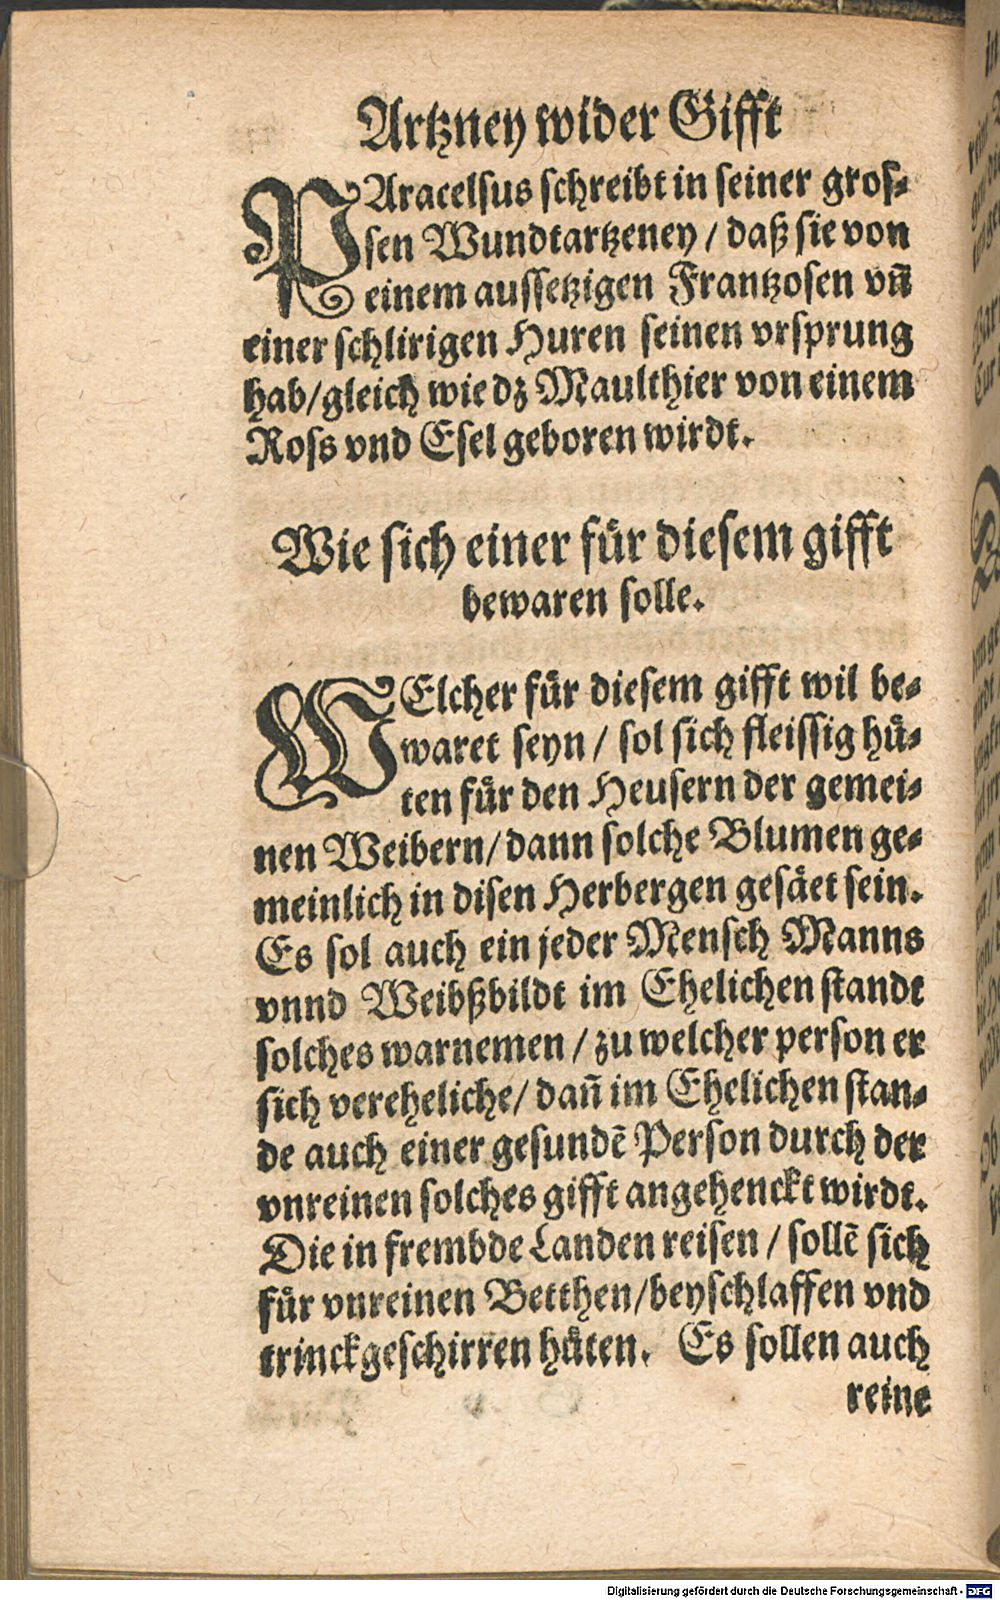 Artzney wider Gifft
PAracelsus schreibt in seiner gros-
sen Wundtartzeney / daß sie von
einem aussetzigen Frantzosen vñ
einer schlirigen Huren seinen vrsprung
hab/gleich wie dz Maulthier von einem
Ross vnd Esel geboren wirdt.
Wie sich einer fuͤr diesem gifft
bewaren solle.
WElcher fuͤr diesem gifft wil be-
waret seyn / sol sich fleissig huͤ-
ten fuͤr den Heusern der gemei-
nen Weibern/dann solche Blumen ge-
meinlich in disen Herbergen gesaͤet sein.
Es sol auch ein jeder Mensch Manns
vnnd Weibßbildt im Ehelichen standt
solches warnemen / zu welcher person er
sich vereheliche/ dañ im Ehelichen stan-
de auch einer gesundẽ Person durch der
vnreinen solches gifft angehenckt wirdt.
Die in frembde Landen reisen / sollẽ sich
fuͤr vnreinen Betthen/beyschlaffen vnd
trinckgeschirren huͤten. Es sollen auch
reine
Digitalisierung gefördert durch die Deutsche Forschungsgemeinschaft - DFG